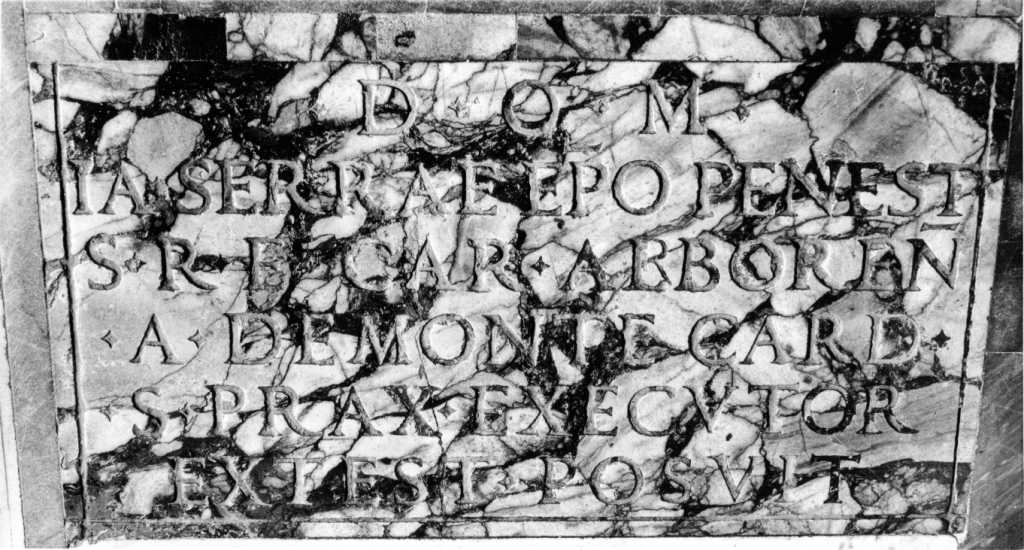 D · O · M ·
IA · SERRAE EPO PENEST
S · R · E · CAR · ARBOREN
· A · DE MONTE CARD ·
· S · PRAX · EXECVTOR
EX TEST · POSVIT